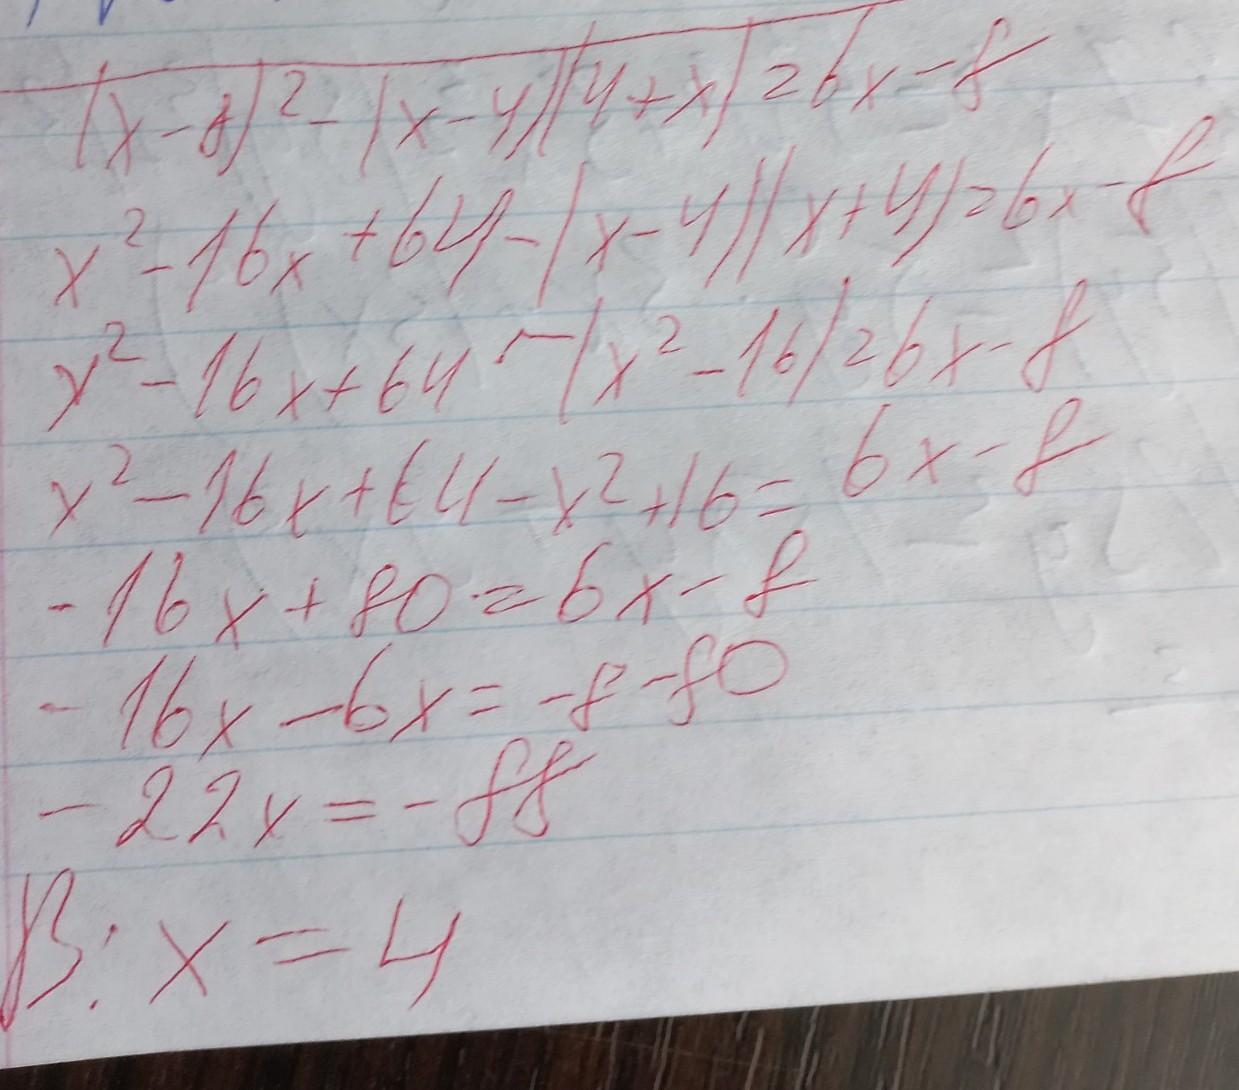 (x-8)²-(x-4)(4+x)=6x-8
x²-16x+64-(x-4)(x+4)=6x-8
x²-16x+64-(x²-16)=6x-8
x²-16x+64-x²+16=6x-8
-16x+80=6x-8
-16x-6x=-8-80
-22x=-88
В: x=4